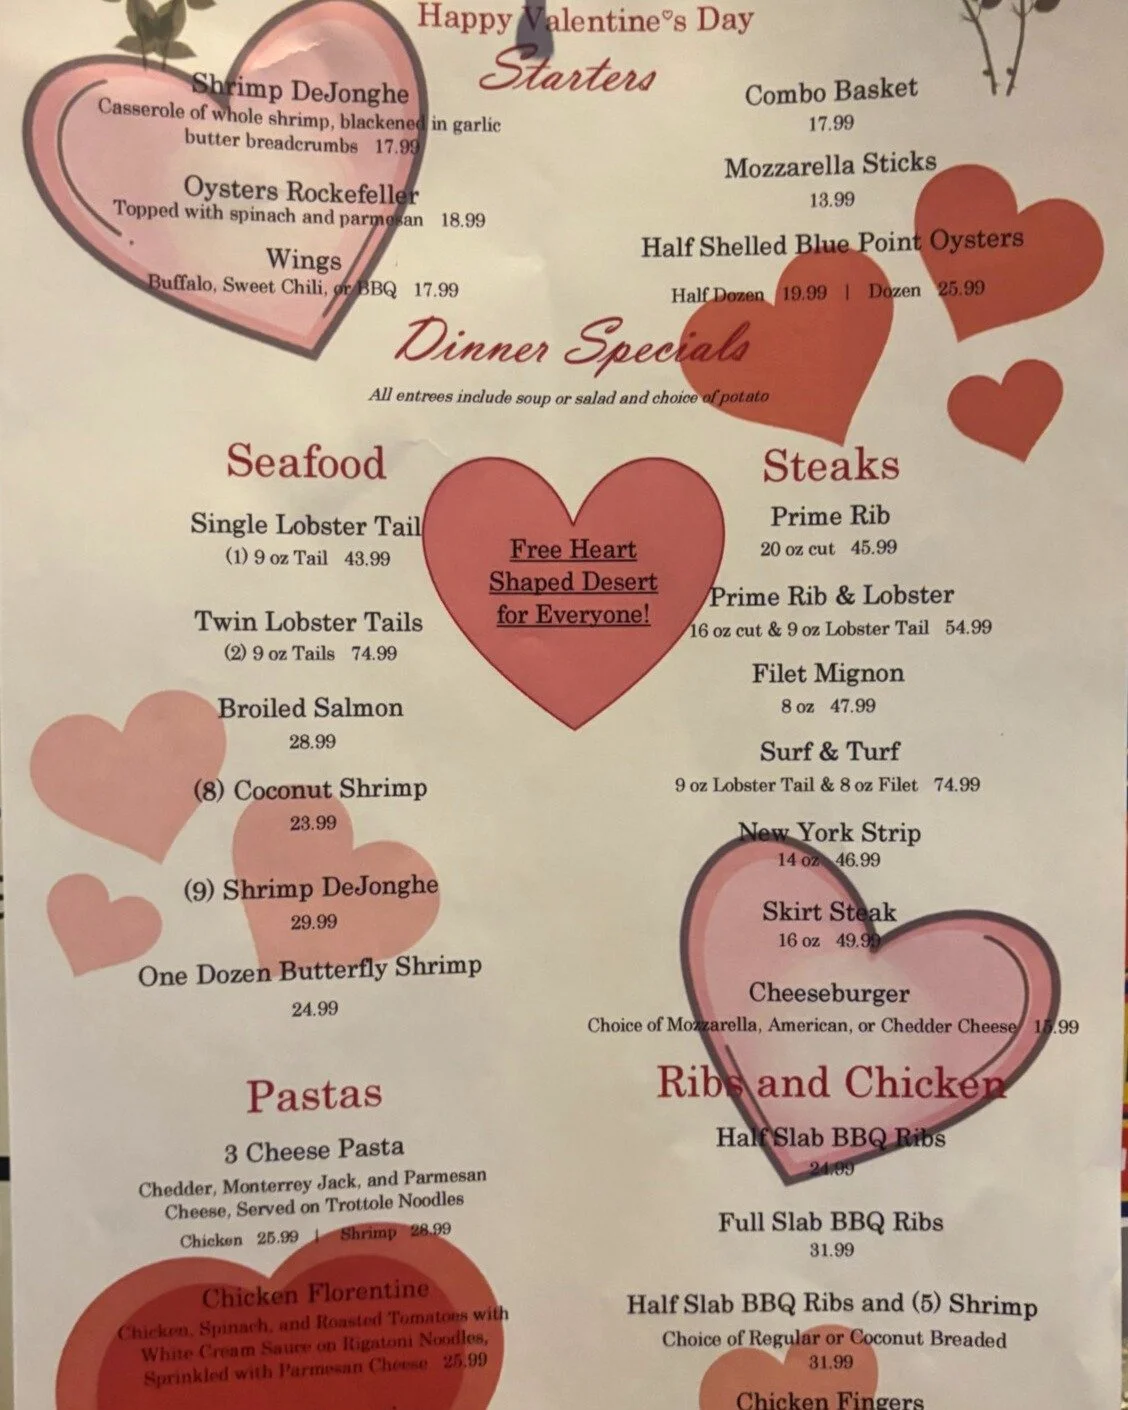 Happy Valentine♡s Day
Starters
Shrimp DeJonghe
Casserole of whole shrimp, blackened in garlic
butter breadcrumbs 17.99
Oysters Rockefeller
Topped with spinach and parmesan 18.99
Wings
Buffalo, Sweet Chili, or BBQ 17.99
Combo Basket
17.99
Mozzarella Sticks
13.99
Half Shelled Blue Point Oysters
Half Dozen 19.99 | Dozen 25.99
Dinner Specials
All entrees include soup or salad and choice of potato
Seafood
Single Lobster Tail
(1) 9 oz Tail 43.99
Twin Lobster Tails
(2) 9 oz Tails 74.99
Broiled Salmon
28.99
(8) Coconut Shrimp
23.99
(9) Shrimp DeJonghe
29.99
One Dozen Butterfly Shrimp
24.99
Free Heart
Shaped Desert
for Everyone!
Steaks
Prime Rib
20 oz cut 45.99
Prime Rib & Lobster
16 oz cut & 9 oz Lobster Tail 54.99
Filet Mignon
8 oz 47.99
Surf & Turf
9 oz Lobster Tail & 8 oz Filet 74.99
New York Strip
14 oz 46.99
Skirt Steak
16 oz 49.99
Cheeseburger
Choice of Mozzarella, American, or Chedder Cheese
Pastas
3 Cheese Pasta
Chedder, Monterrey Jack, and Parmesan
Cheese, Served on Trottole Noodles
Chicken 25.99 | Shrimp 28.99
Chicken Florentine
Chicken, Spinach, and Roasted Tomatoes with
White Cream Sauce on Rigatoni Noodles,
Sprinkled with Parmesan Cheese 25.99
Ribs and Chicken
Half Slab BBQ Ribs
24.99
Full Slab BBQ Ribs
31.99
Half Slab BBQ Ribs and (5) Shrimp
Choice of Regular or Coconut Breaded
31.99
Chicken Fingers